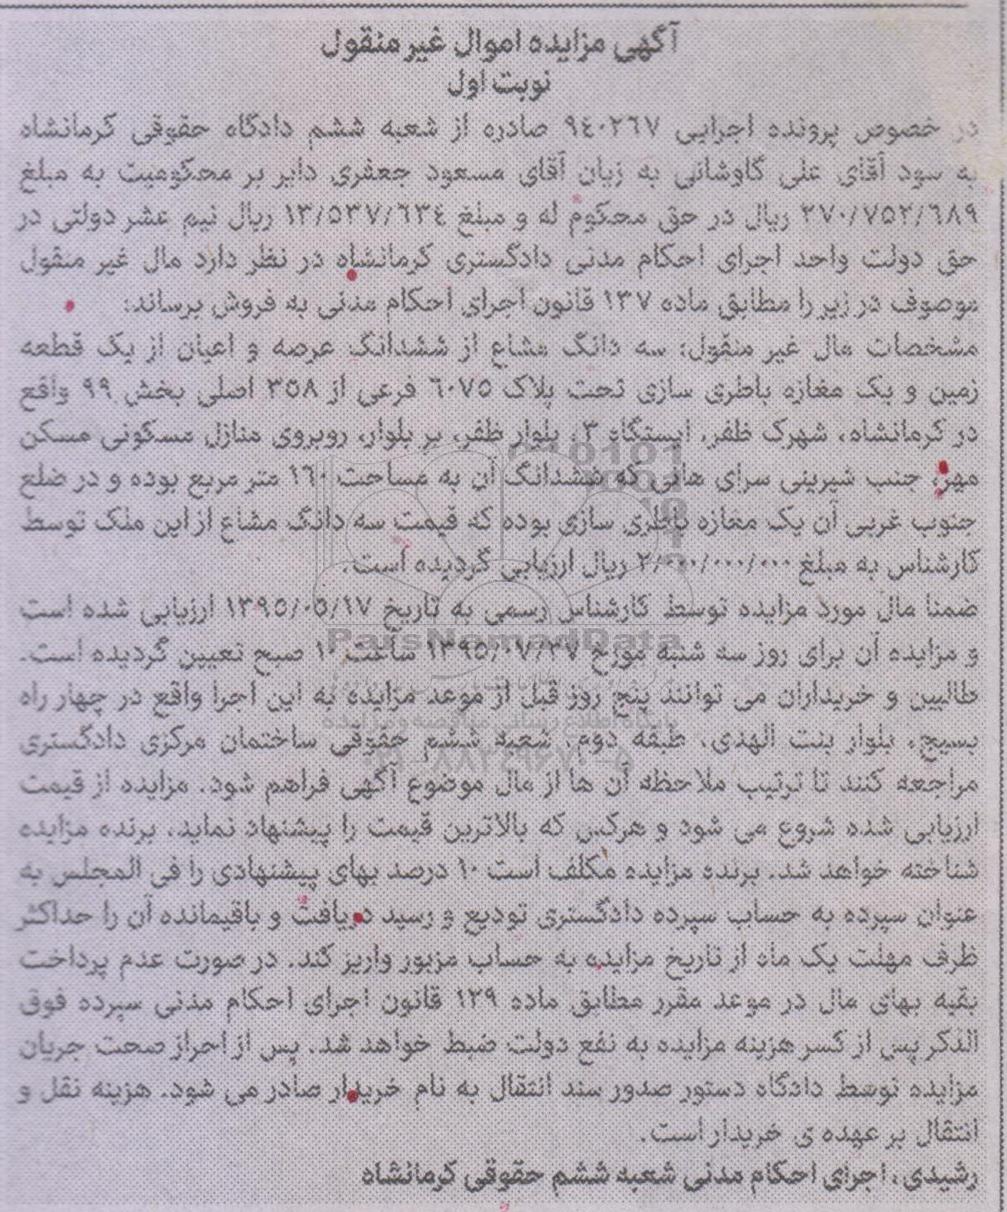 آگهی مزایده اموال غیر منقول
نوبت اول
در خصوص پرونده اجرایی ۹۴۰۲۶۷ صادره از شعبه ششم دادگاه حقوقی کرمانشاه
به سود آقای علی گاوشانی به زیان آقای مسعود جعفری دایر بر محکومیت به مبلغ
۲۷۰/۷۵۲/۶۸۹ ریال در حق محکوم له و مبلغ ۱۳/۵۳۷/۶۳۴ ریال نیم عشر دولتی در
حق دولت واحد اجرای احکام مدنی دادگستری کرمانشاه در نظر دارد مال غیر منقول
موصوف در زیر را مطابق ماده ۱۳۷ قانون اجرای احکام مدنی به فروش برساند:
مشخصات مال غیر منقول: سه دانگ مشاع از ششدانگ عرصه و اعیان از یک قطعه
زمین و یک مغازه باطری سازی تحت پلاک ۶۰۷۵ فرعی از ۳۵۸ اصلی بخش ۹۹ واقع
در کرمانشاه، شهرک ظفر، ایستگاه ۳، بلوار ظفر، بر بلوار، روبروی منازل مسکونی مسکن
مهر، جنب شیرینی سرای هانی که ششدانگ آن به مساحت ۱۶۰ متر مربع بوده و در ضلع
جنوب غربی آن یک مغازه باطری سازی بوده که قیمت سه دانگ مشاع از این ملک توسط
کارشناس به مبلغ ۲/۰۰۰/۰۰۰/۰۰۰ ریال ارزیابی گردیده است.
ضمنا مال مورد مزایده توسط کارشناس رسمی به تاریخ ۱۳۹۵/۰۵/۱۷ ارزیابی شده است
و مزایده آن برای روز سه شنبه مورخ ۱۳۹۵/۰۷/۲۷ ساعت ۱۰ صبح تعیین گردیده است.
طالبین و خریداران می توانند پنج روز قبل از موعد مزایده به این اجرا واقع در چهار راه
بسیج، بلوار بنت الهدی، طبقه دوم، شعبه ششم حقوقی ساختمان مرکزی دادگستری
مراجعه کنند تا ترتیب ملاحظه آن ها از مال موضوع آگهی فراهم شود. مزایده از قیمت
ارزیابی شده شروع می شود و هرکس که بالاترین قیمت را پیشنهاد نماید، برنده مزایده
شناخته خواهد شد. برنده مزایده مکلف است ۱۰ درصد بهای پیشنهادی را فی المجلس به
عنوان سپرده به حساب سپرده دادگستری تودیع و رسید دریافت و باقیمانده آن را حداکثر
ظرف مهلت یک ماه از تاریخ مزایده به حساب مزبور واریز کند. در صورت عدم پرداخت
بقیه بهای مال در موعد مقرر مطابق ماده ۱۲۹ قانون اجرای احکام مدنی سپرده فوق
الذکر پس از کسر هزینه مزایده به نفع دولت ضبط خواهد شد. پس از احراز صحت جریان
مزایده توسط دادگاه دستور صدور سند انتقال به نام خریدار صادر می شود. هزینه نقل و
انتقال بر عهده ی خریدار است.
رشیدی، اجرای احکام مدنی شعبه ششم حقوقی کرمانشاه
ParsNamadData
پایگاه اطلاع رسانی مناقصه و مزایده
۰۲۱-۸۸۳۴۹۶۷۰-۵